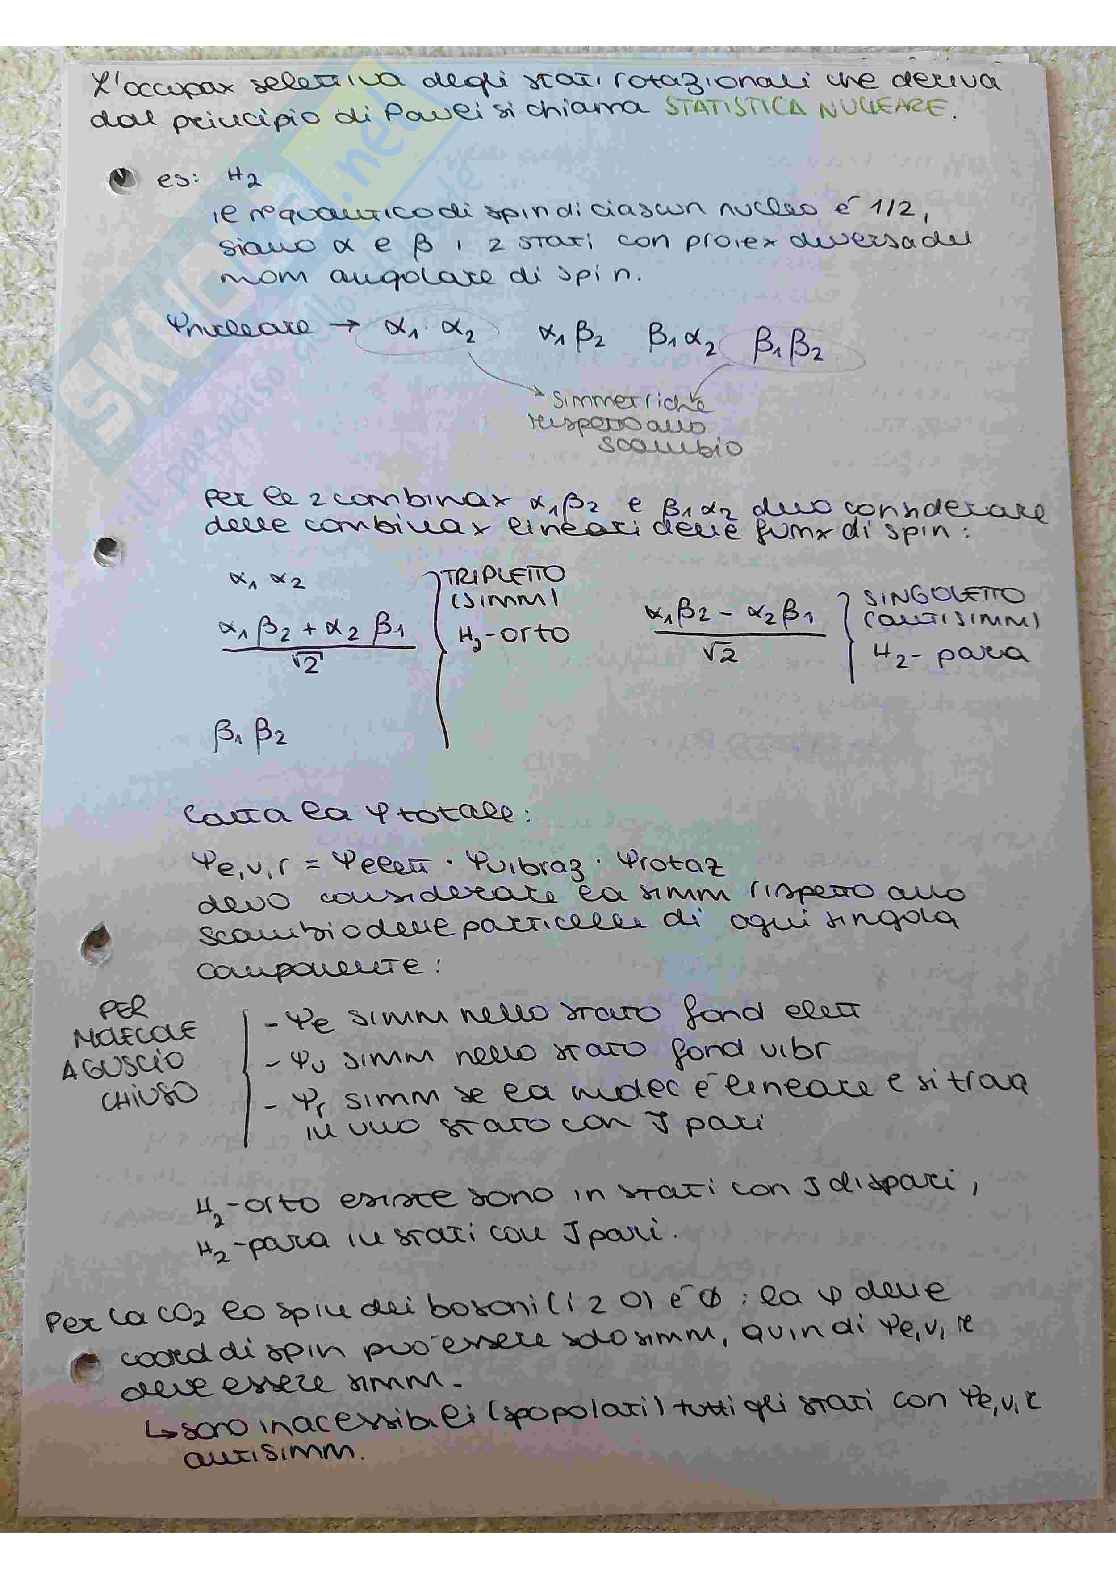 L'occupax selettiva degli stati rotazionali che deriva
dal principio di Pauli si chiama STATISTICA NUCLEARE.
es: H2
il n° quantico di spin di ciascun nucleo è 1/2,
siano α e β i 2 stati con proiex diversa del
mom angolare di spin.
Ψnucleare → α1 · α2 α1 β2 β1 α2 β1 β2
simmetriche
rispetto allo
scambio
Per le 2 combinax α1 β2 e β1 α2 devo considerare
delle combinax lineari delle funx di spin:
α1 α2
α1 β2 + α2 β1
√2
β1 β2
TRIPLETTO
(SIMM)
H2-orto
α1 β2 - α2 β1
√2
SINGOLETTO
(ANTISIMM)
H2-para
Data la Ψ totale:
Ψe,v,r = Ψelett · Ψvibraz · Ψrotaz
devo considerare la simm rispetto allo
scambio delle particelle di ogni singola
componente:
PER
MOLECOLE
A GUSCIO
CHIUSO
- Ψe simm nello stato fond elett
- Ψv simm nello stato fond vibr
- Ψr simm se la molec è lineare e si trova
in uno stato con J pari
H2-orto esiste sono in stati con J dispari,
H2-para in stati con J pari.
Per la CO2 lo spin dei bosoni (i 2 O) è Ø: la Ψ delle
coord di spin può essere solo simm, quindi Ψe,v,r
deve essere simm.
↳ sono inacessibili (spopolati) tutti gli stati con Ψe,v,r
antisimm.